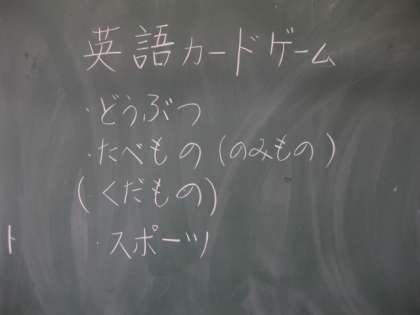 英語カードゲーム
・どうぶつ
・たべもの(のみもの)
(くだもの)
・スポーツ
ト